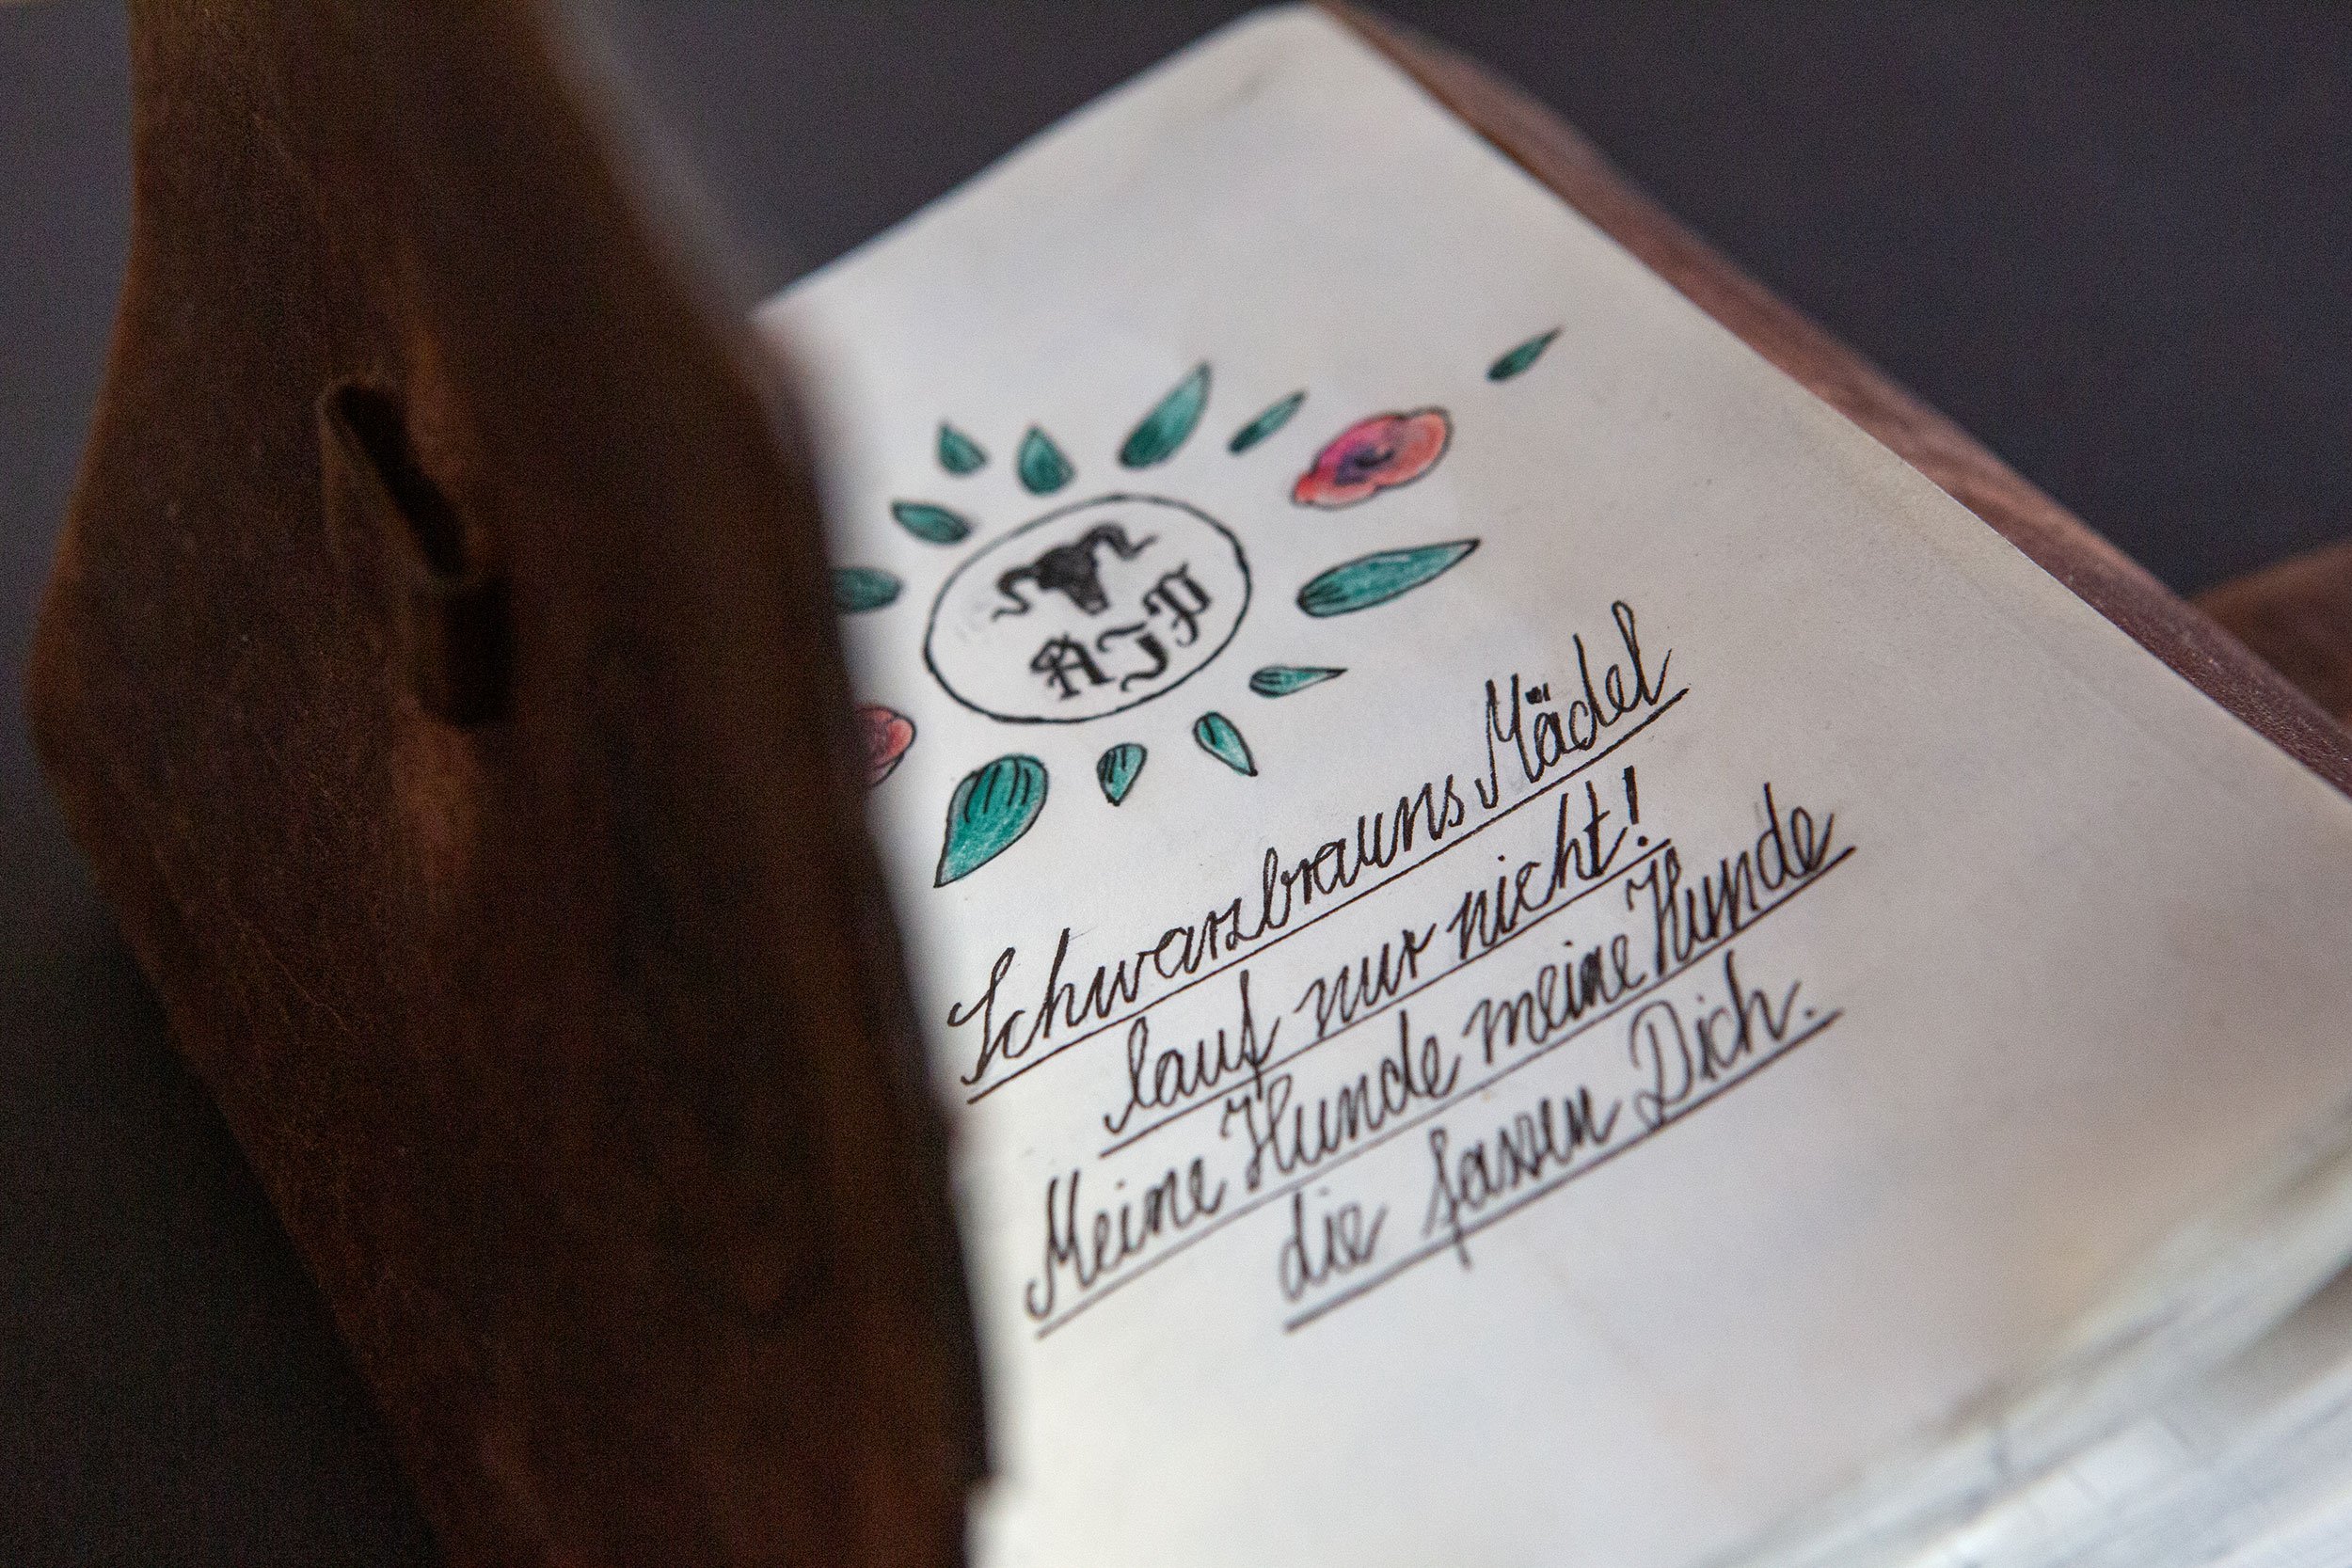 ATP
Schwarzbrauns Mädel
lauf nur nicht!
Meine Hunde meine Hunde
die fassen Dich.